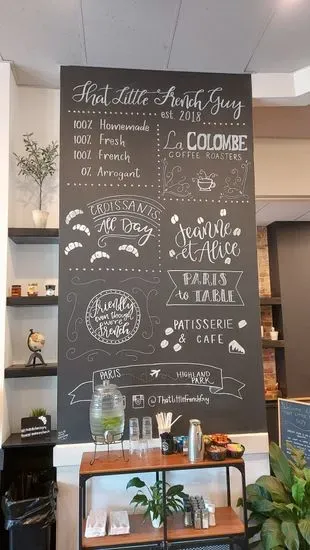 That Little French Guy
est. 2018
100% Homemade
100% Fresh
100% French
0% Arrogant
La COLOMBE
COFFEE ROASTERS
CROISSANTS
All Day
Jeanne
et Alice
PARIS
to TABLE
friendly
even though
we're
french
PATISSERIE
& CAFE
PARIS
HIGHLAND
PARK
@Thatlittlefrenchguy